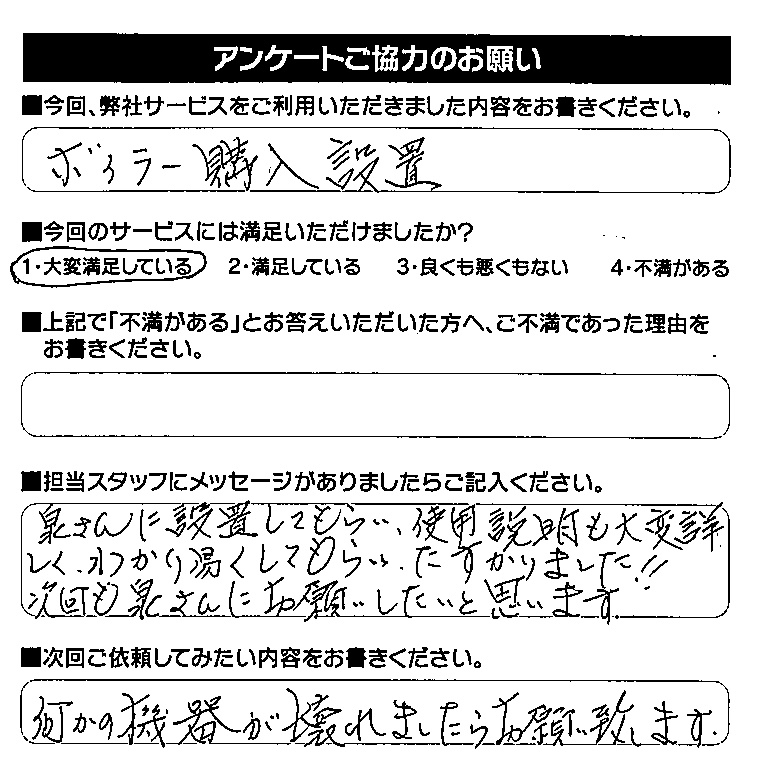 アンケートご協力のお願い
■今回、弊社サービスをご利用いただきました内容をお書きください。
ボイラー購入設置
■今回のサービスには満足いただけましたか?
1・大変満足している 2・満足している 3・良くも悪くもない 4・不満がある
■上記で「不満がある」とお答えいただいた方へ、ご不満であった理由を
お書きください。
■担当スタッフにメッセージがありましたらご記入ください。
泉さんに設置してもらい、使用説明も大変詳
しく、わかり湯くしてもらい、たすかりました!!
次回も泉さんにお願いしたいと思います。
■次回ご依頼してみたい内容をお書きください。
何かの機器が壊れましたらお願い致します。